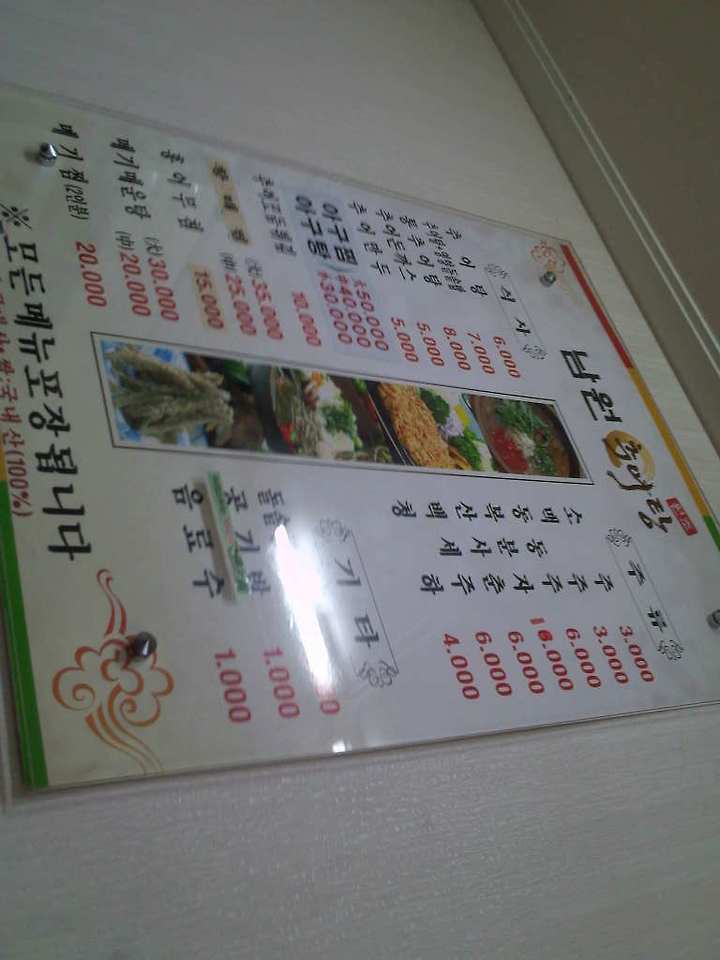 남원 추어탕
식사
추어탕 6.000
7.000
통추어탕 8.000
추어돈까스 5.000
추어만두 5.000
아구찜 大50.000
아구탕 中40.000
小30.000
10.000
황태찜 (大)35.000
(中)25.000
15.000
홍어무침 (大)30.000
메기매운탕 (中)20.000
메기찜(2인분) 20.000
주류
소주 3.000
맥주 3.000
동동주 6.000
복분자 16.000
산사춘 6.000
백세주 6.000
청하 4.000
기타
돌솥밥
공기밥 1.000
음료수 1.000
※모든메뉴포장됩니다
국내산(100%)